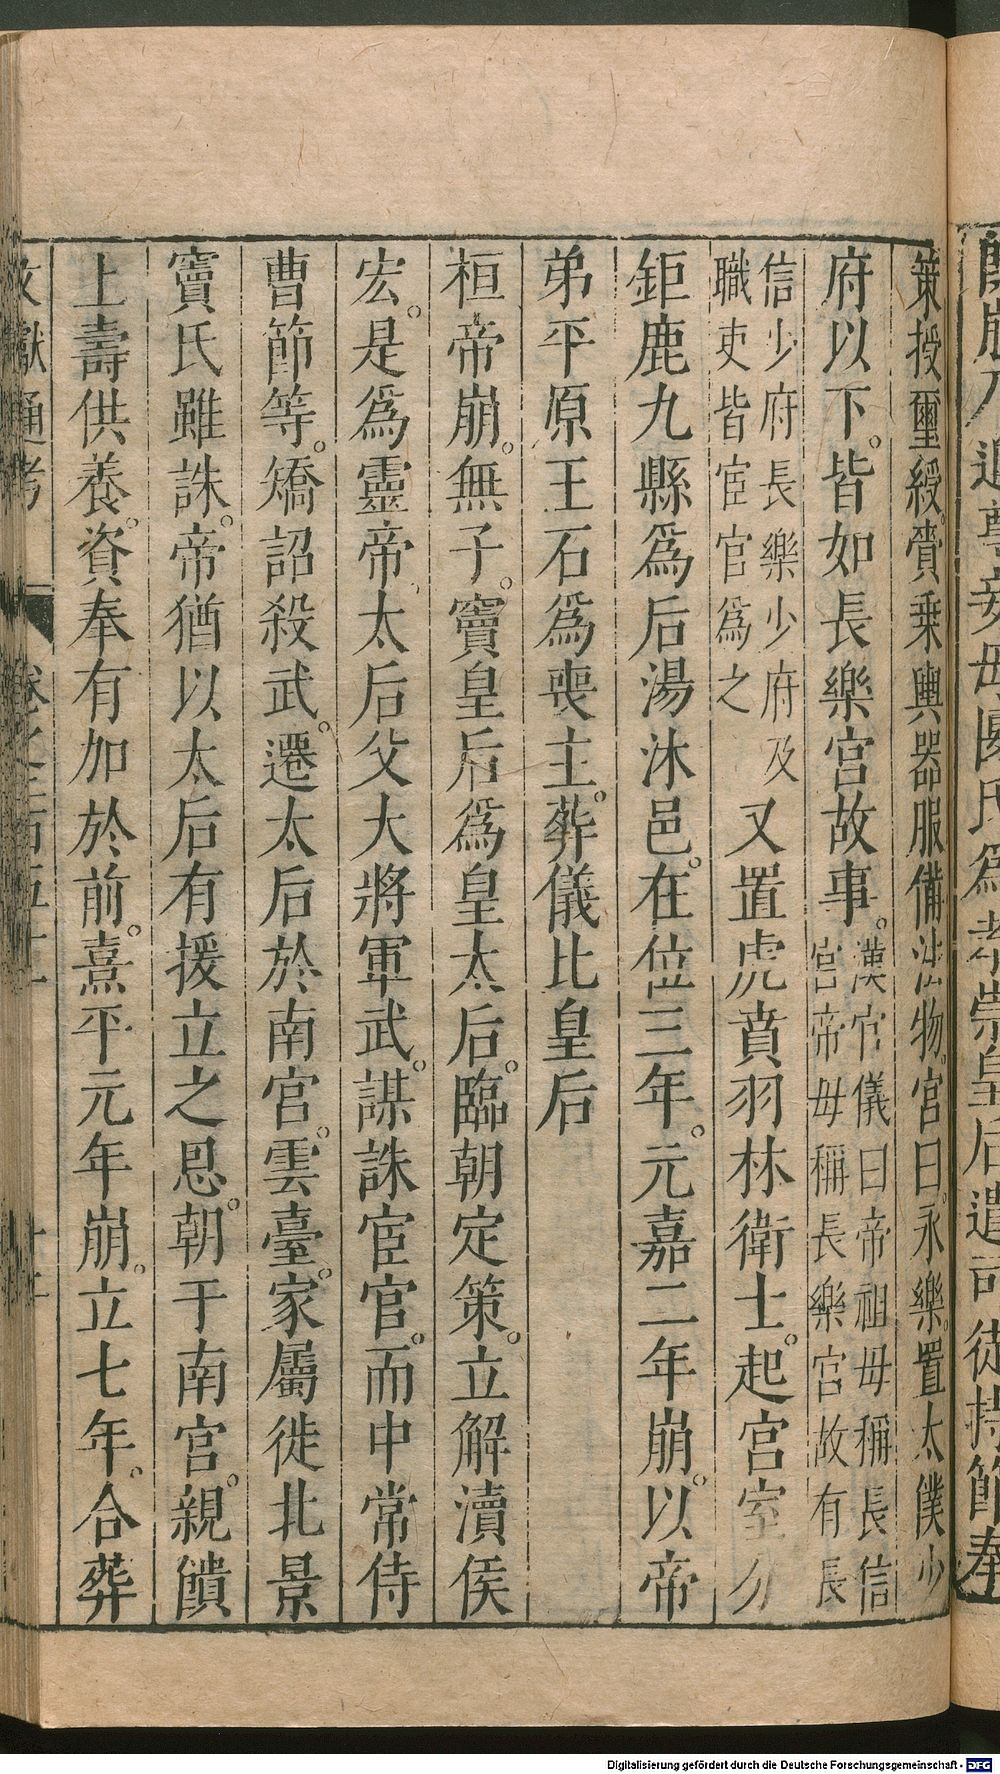 策授璽綬。賫乘輿器服備法物。宮曰。永樂。置太僕少
府以下。皆如長樂宮故事。漢官儀曰帝祖母稱長信宮帝母稱長樂宮故有長
信少府長樂少府及職吏皆宦官爲之又置虎賁羽林衛士。起宮室分
鉅鹿九縣爲后湯沐邑。在位三年。元嘉二年崩。以帝
弟平原王石爲喪主。葬儀比皇后
桓帝崩。無子。竇皇后爲皇太后。臨朝定策。立解瀆侯
宏。是爲靈帝、太后父大將軍武。謀誅宦官。而中常侍
曹節等。矯詔殺武。遷太后於南宮。雲臺。家屬徙北景
竇氏雖誅。帝猶以太后有援立之恩。朝于南宮。親饋
上壽供養。資奉有加於前。熹平元年崩。立七年。合葬
文獻通考 卷之二百五十一
Digitalisierung gefördert durch die Deutsche Forschungsgemeinschaft - DFG